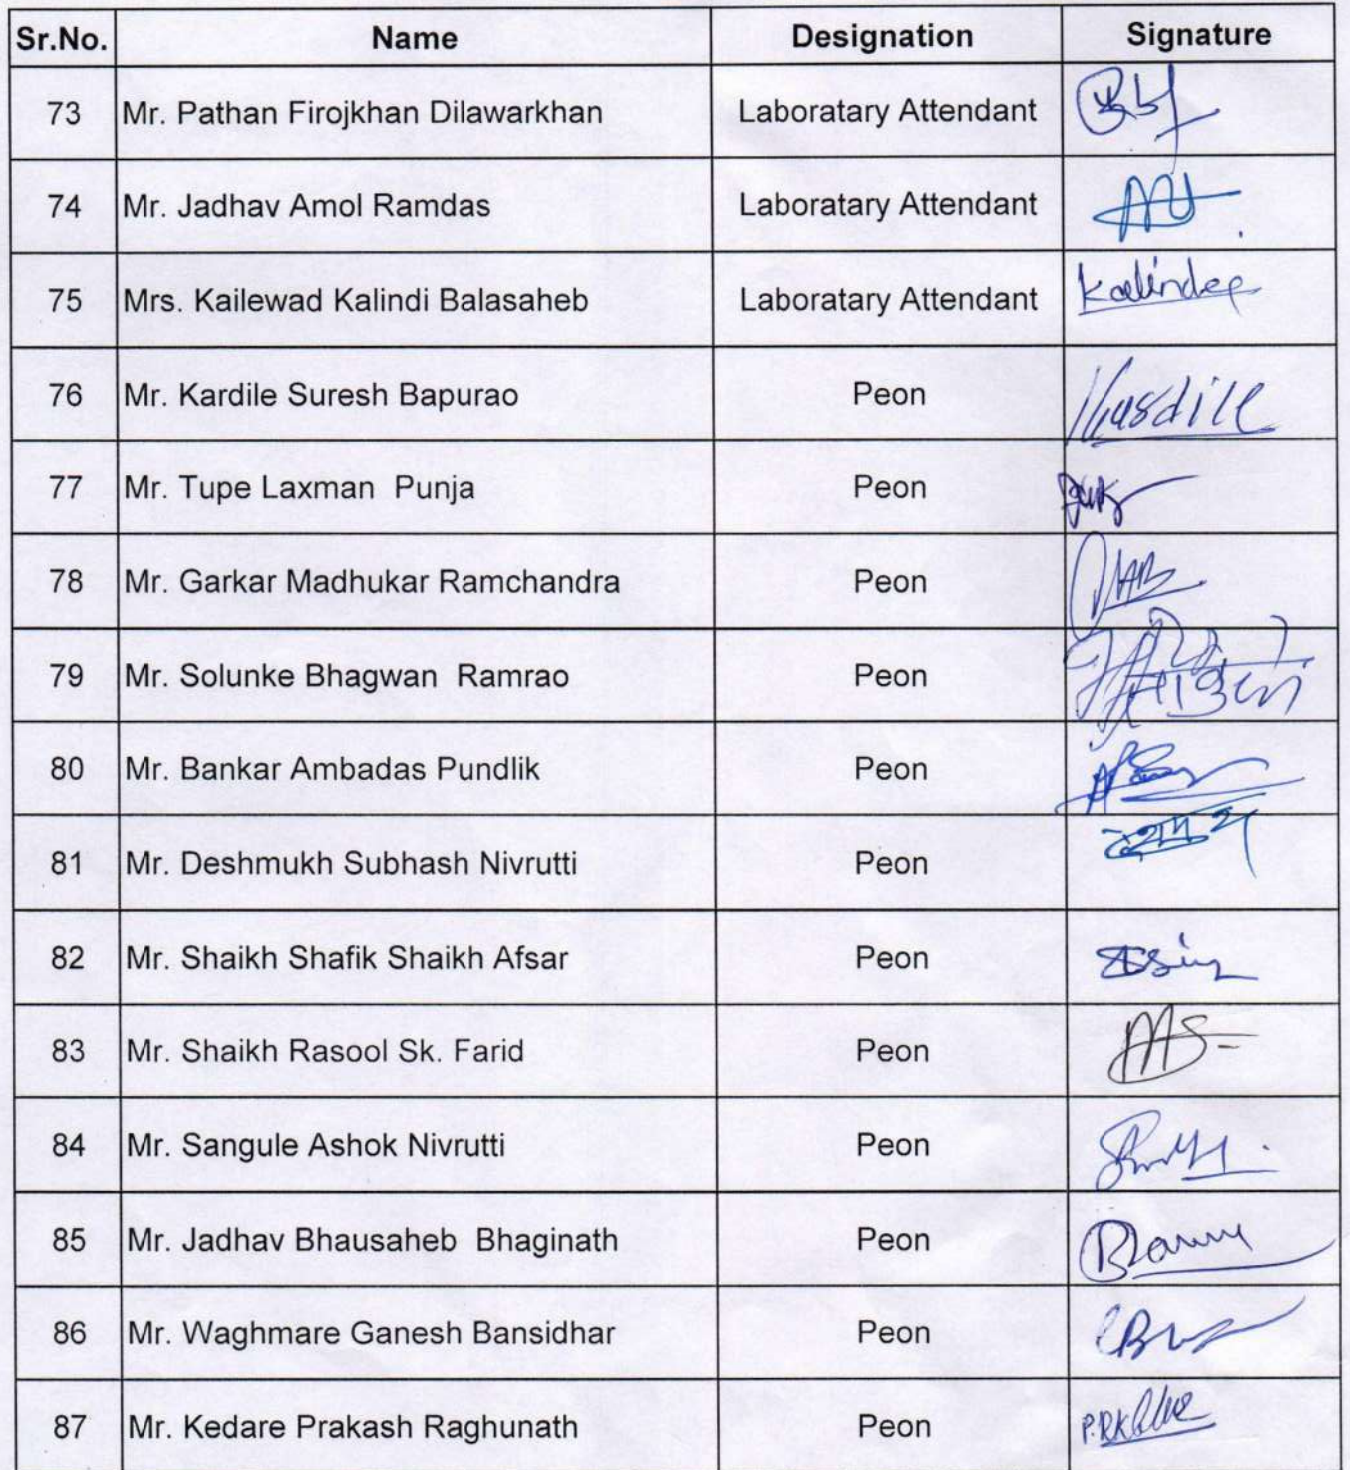 Sr.No. Name Designation Signature
73 Mr. Pathan Firojkhan Dilawarkhan Laboratary Attendant
74 Mr. Jadhav Amol Ramdas Laboratary Attendant
75 Mrs. Kailewad Kalindi Balasaheb Laboratary Attendant Kalindee
76 Mr. Kardile Suresh Bapurao Peon Kardile
77 Mr. Tupe Laxman Punja Peon
78 Mr. Garkar Madhukar Ramchandra Peon
79 Mr. Solunke Bhagwan Ramrao Peon
80 Mr. Bankar Ambadas Pundlik Peon
81 Mr. Deshmukh Subhash Nivrutti Peon
82 Mr. Shaikh Shafik Shaikh Afsar Peon
83 Mr. Shaikh Rasool Sk. Farid Peon
84 Mr. Sangule Ashok Nivrutti Peon
85 Mr. Jadhav Bhausaheb Bhaginath Peon
86 Mr. Waghmare Ganesh Bansidhar Peon
87 Mr. Kedare Prakash Raghunath Peon